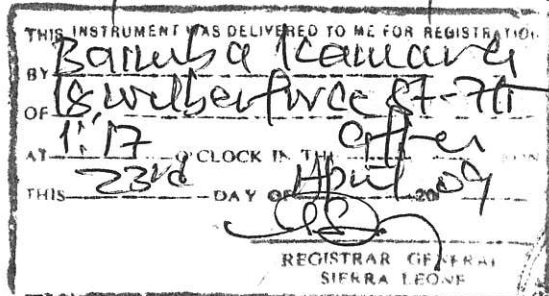 THIS INSTRUMENT WAS DELIVERED TO ME FOR REGISTRATION
BY Bamba Kamara
OF 18, Wilberforce St-
AT 1:17 O'CLOCK IN THE after NOON
THIS 23rd DAY OF April 2009
REGISTRAR GENERAL
SIERRA LEONE